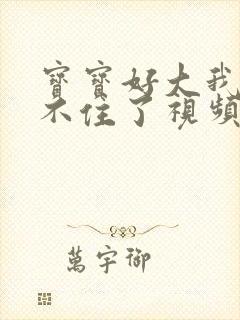 寶寶好大我
不住了視頻
萬宇御